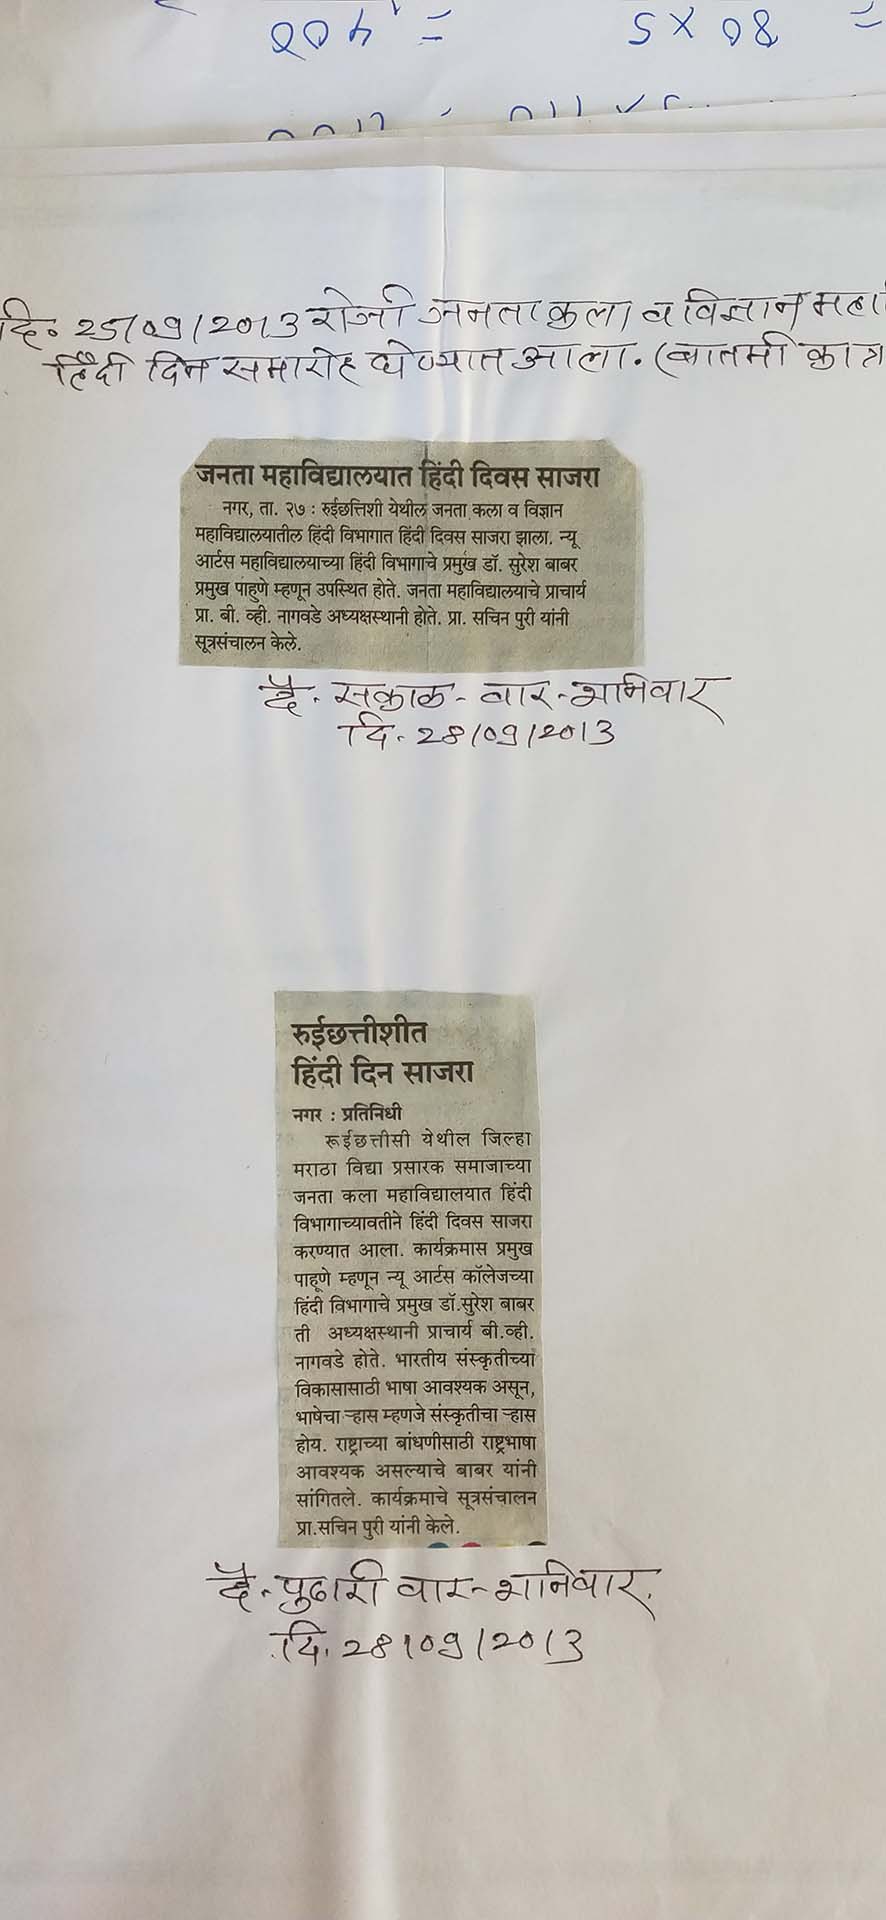 दि. 25/09/2013 रोजी जनता कला व विज्ञान महा
हिंदी दिन समारोह घेण्यात आला. (बातमी कात्र
जनता महाविद्यालयात हिंदी दिवस साजरा
नगर, ता. २७ : रुईछत्तिशी येथील जनता कला व विज्ञान
महाविद्यालयातील हिंदी विभागात हिंदी दिवस साजरा झाला. न्यू
आर्टस महाविद्यालयाच्या हिंदी विभागाचे प्रमुख डॉ. सुरेश बाबर
प्रमुख पाहुणे म्हणून उपस्थित होते. जनता महाविद्यालयाचे प्राचार्य
प्रा. बी. व्ही. नागवडे अध्यक्षस्थानी होते. प्रा. सचिन पुरी यांनी
सूत्रसंचालन केले.
दै. सकाळ - वार - शनिवार
दि. 28/09/2013
रुईछत्तीशीत
हिंदी दिन साजरा
नगर : प्रतिनिधी
रूईछत्तीसी येथील जिल्हा
मराठा विद्या प्रसारक समाजाच्या
जनता कला महाविद्यालयात हिंदी
विभागाच्यावतीने हिंदी दिवस साजरा
करण्यात आला. कार्यक्रमास प्रमुख
पाहूणे म्हणून न्यू आर्टस कॉलेजच्या
हिंदी विभागाचे प्रमुख डॉ.सुरेश बाबर
ती अध्यक्षस्थानी प्राचार्य बी.व्ही.
नागवडे होते. भारतीय संस्कृतीच्या
विकासासाठी भाषा आवश्यक असून,
भाषेचा ऱ्हास म्हणजे संस्कृतीचा ऱ्हास
होय. राष्ट्राच्या बांधणीसाठी राष्ट्रभाषा
आवश्यक असल्याचे बाबर यांनी
सांगितले. कार्यक्रमाचे सूत्रसंचालन
प्रा.सचिन पुरी यांनी केले.
दै. पुढारी वार - शनिवार.
दि. 28/09/2013